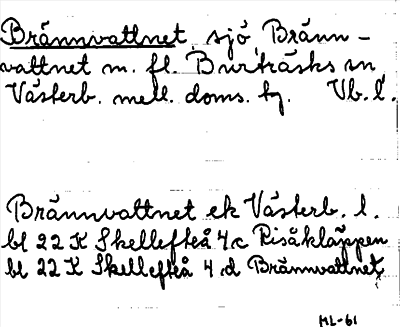 Brännvattnet, sjö, Bränn-
vattnet m. fl. Burträsks sn
Västerb. mell. doms. tg. Vb. l.
Brännvattnet ek Västerb. l.
bl 22 K Skellefteå 4c Risåkläppen
bl 22 K Skellefteå 4 d Brännvattnet
ML-61